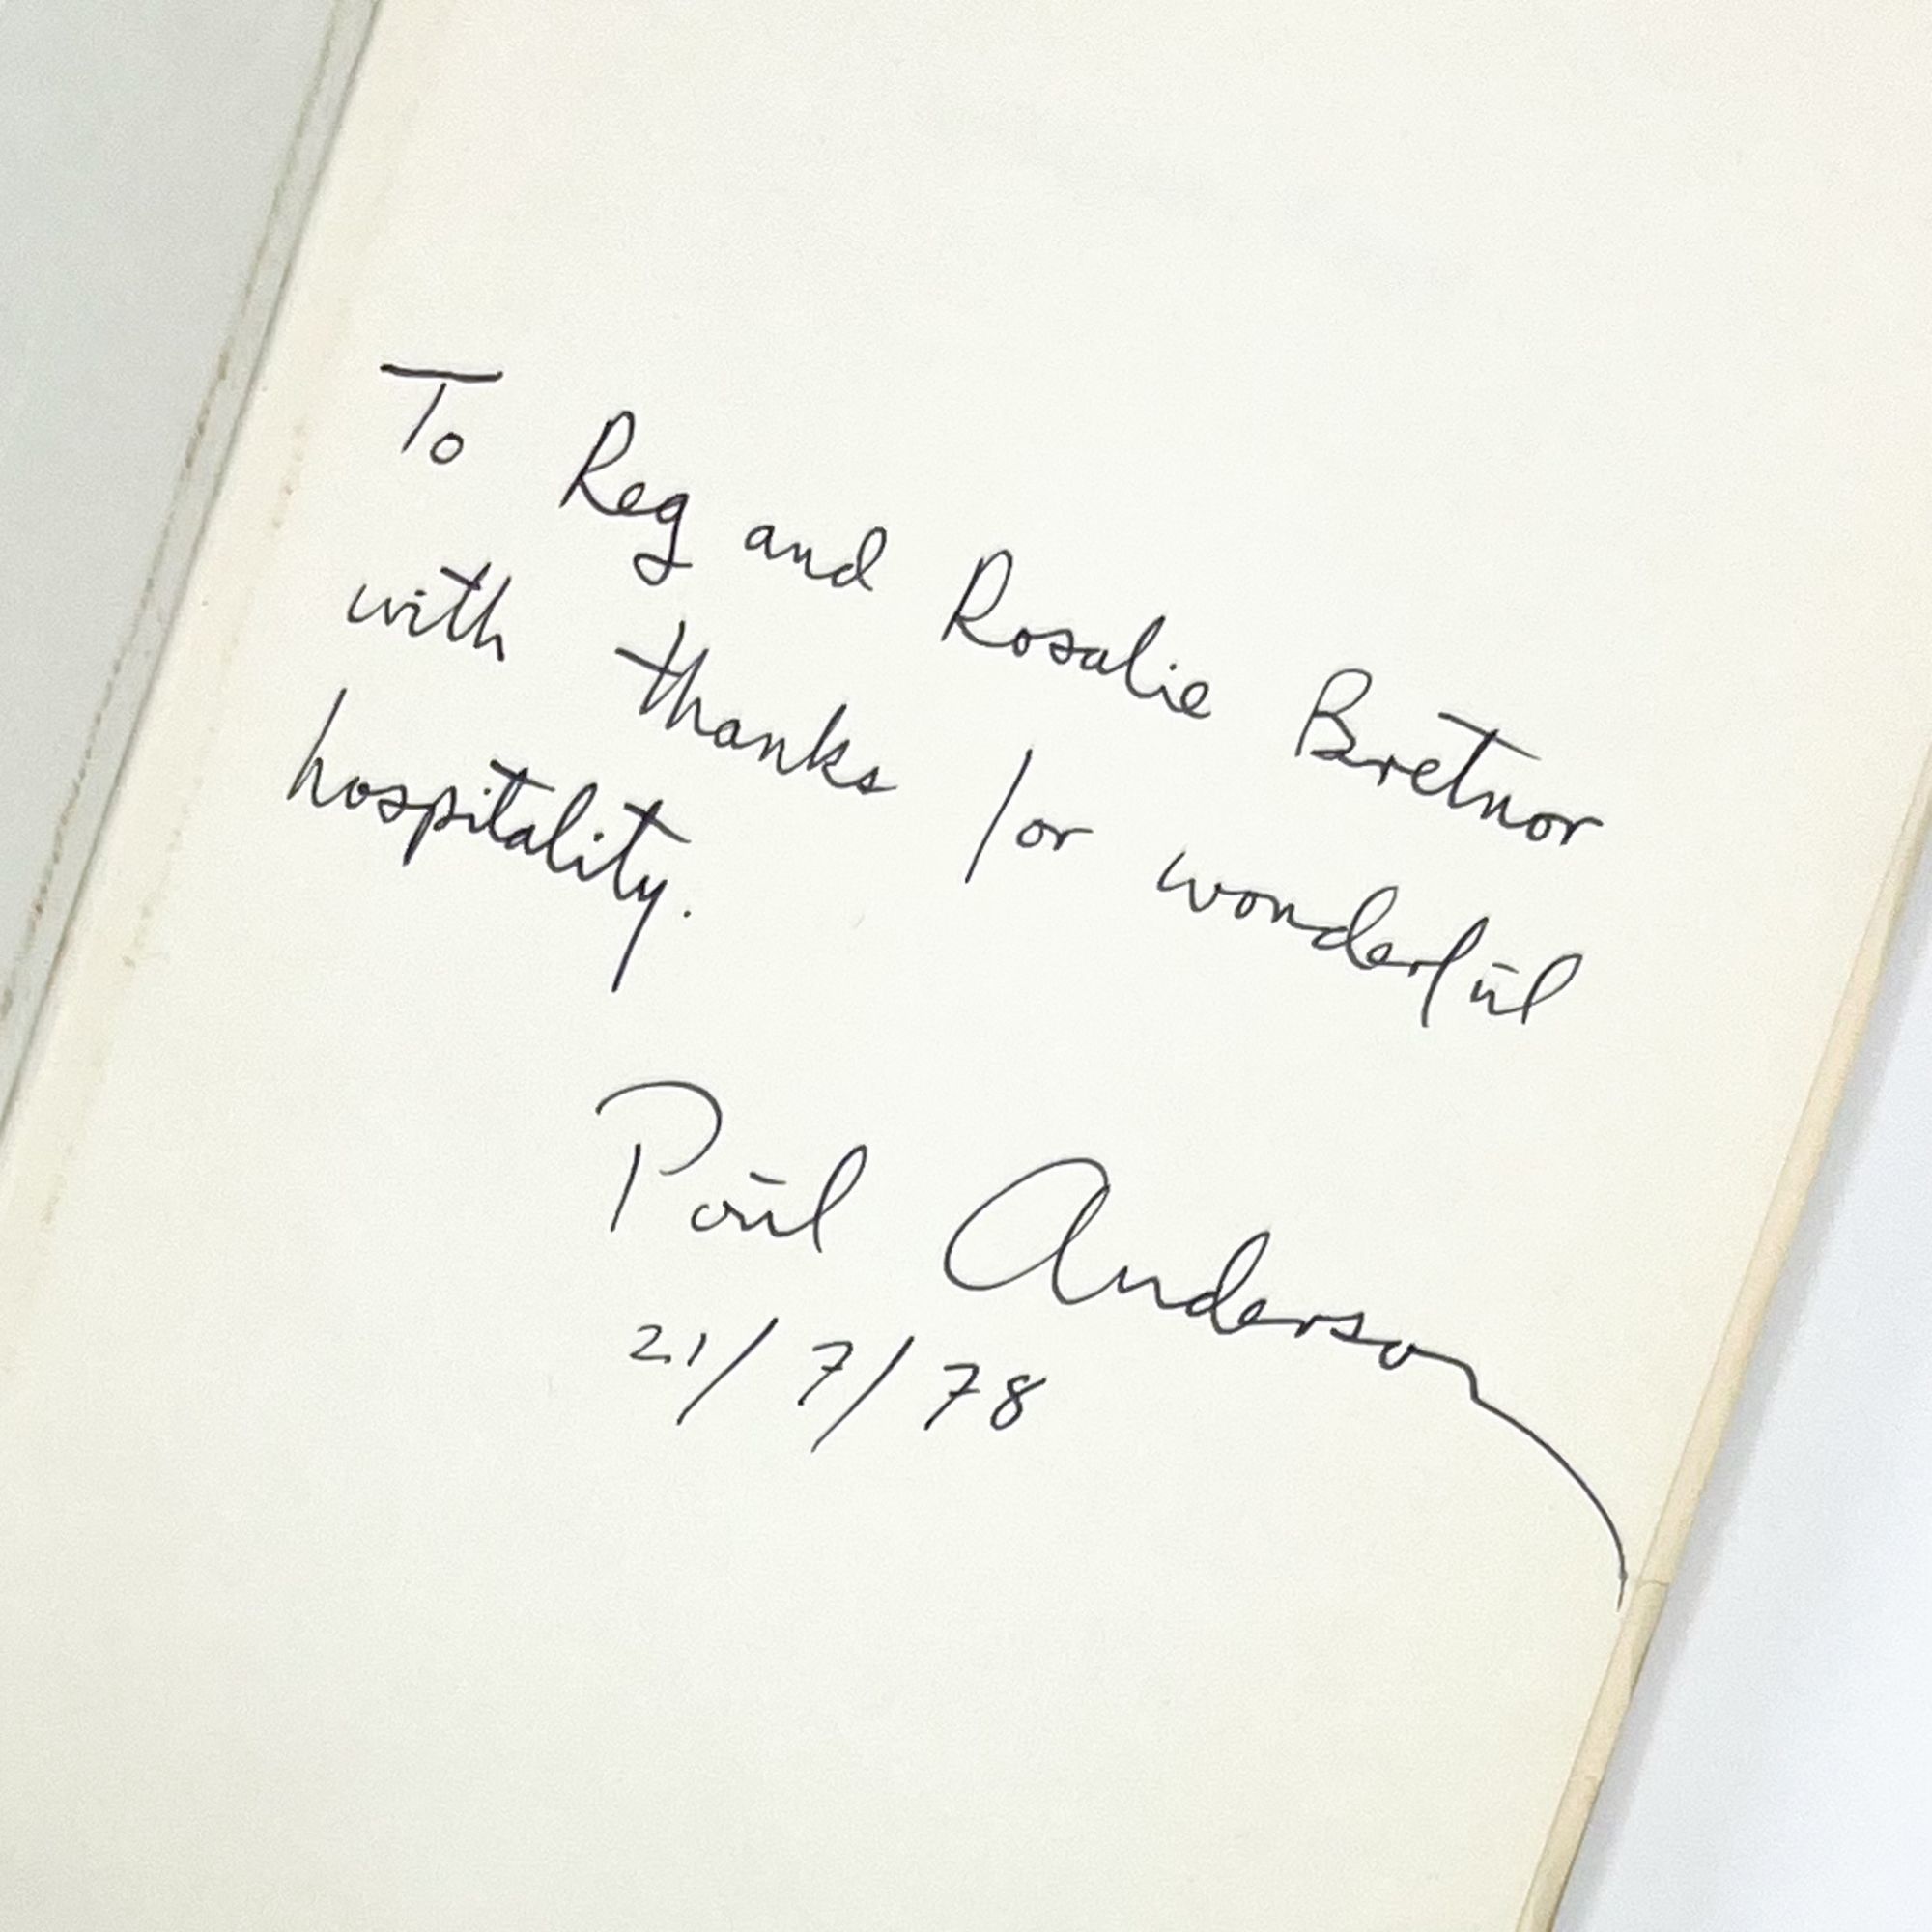 To Reg and Rosalie Bretnor
with thanks for wonderful
hospitality.
Poul Anderson
21/7/78